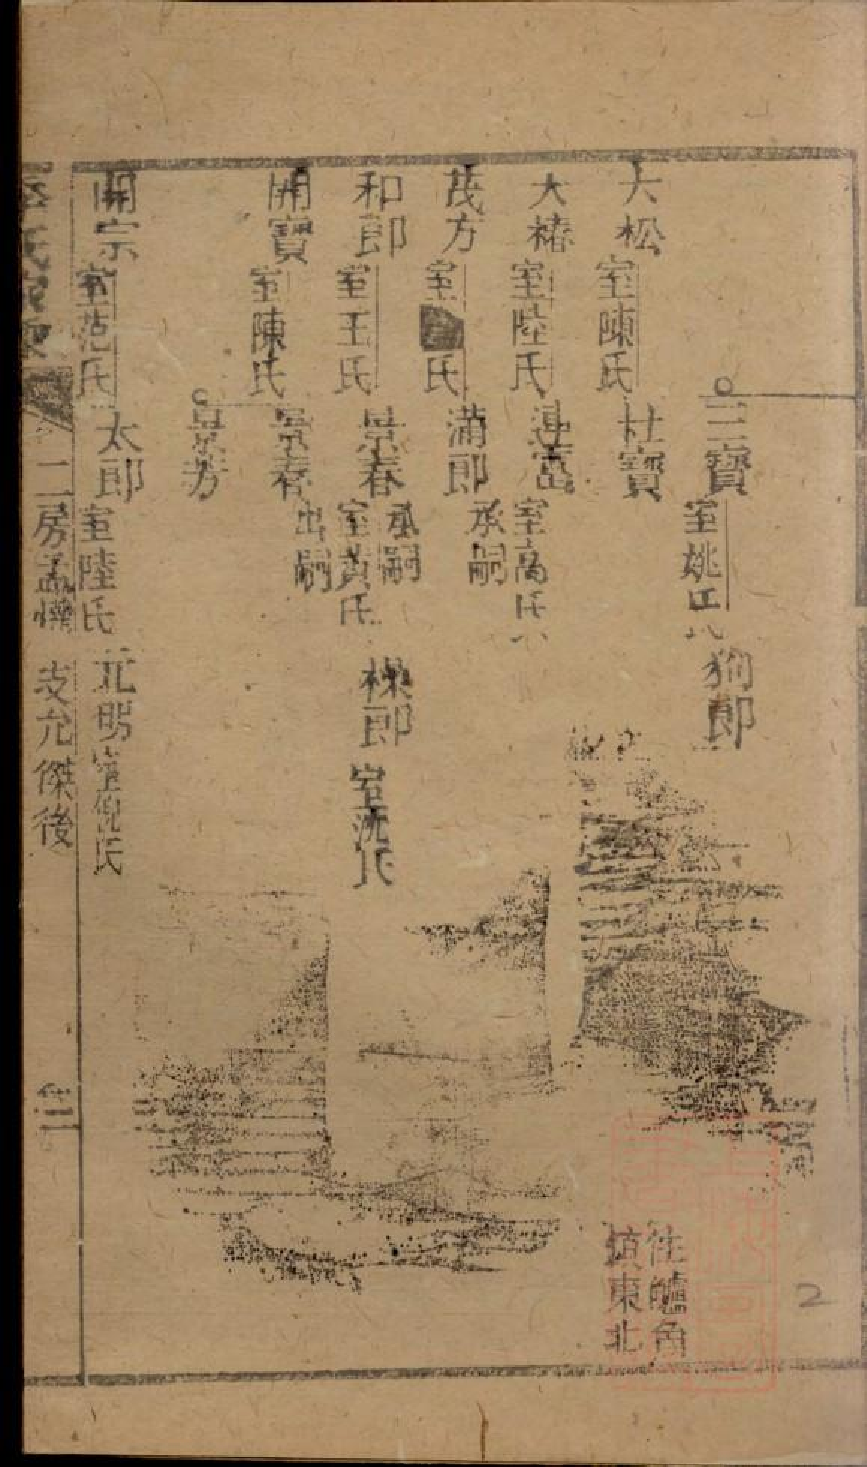 三寶 室姚氏 狗郎
大松 室陳氏 杜寶 住鱸角
鎮東北
大椿 室陸氏 連富 室高氏
茂方 室 氏 滿郎 承嗣
和郎 室王氏 景春 承嗣
室黃氏 楳郎 室沈氏
開寶 室陳氏 景春 出嗣
景芳
開宗 室范氏 太郎 室陸氏 元明 室倪氏
二房孟 支允傑後